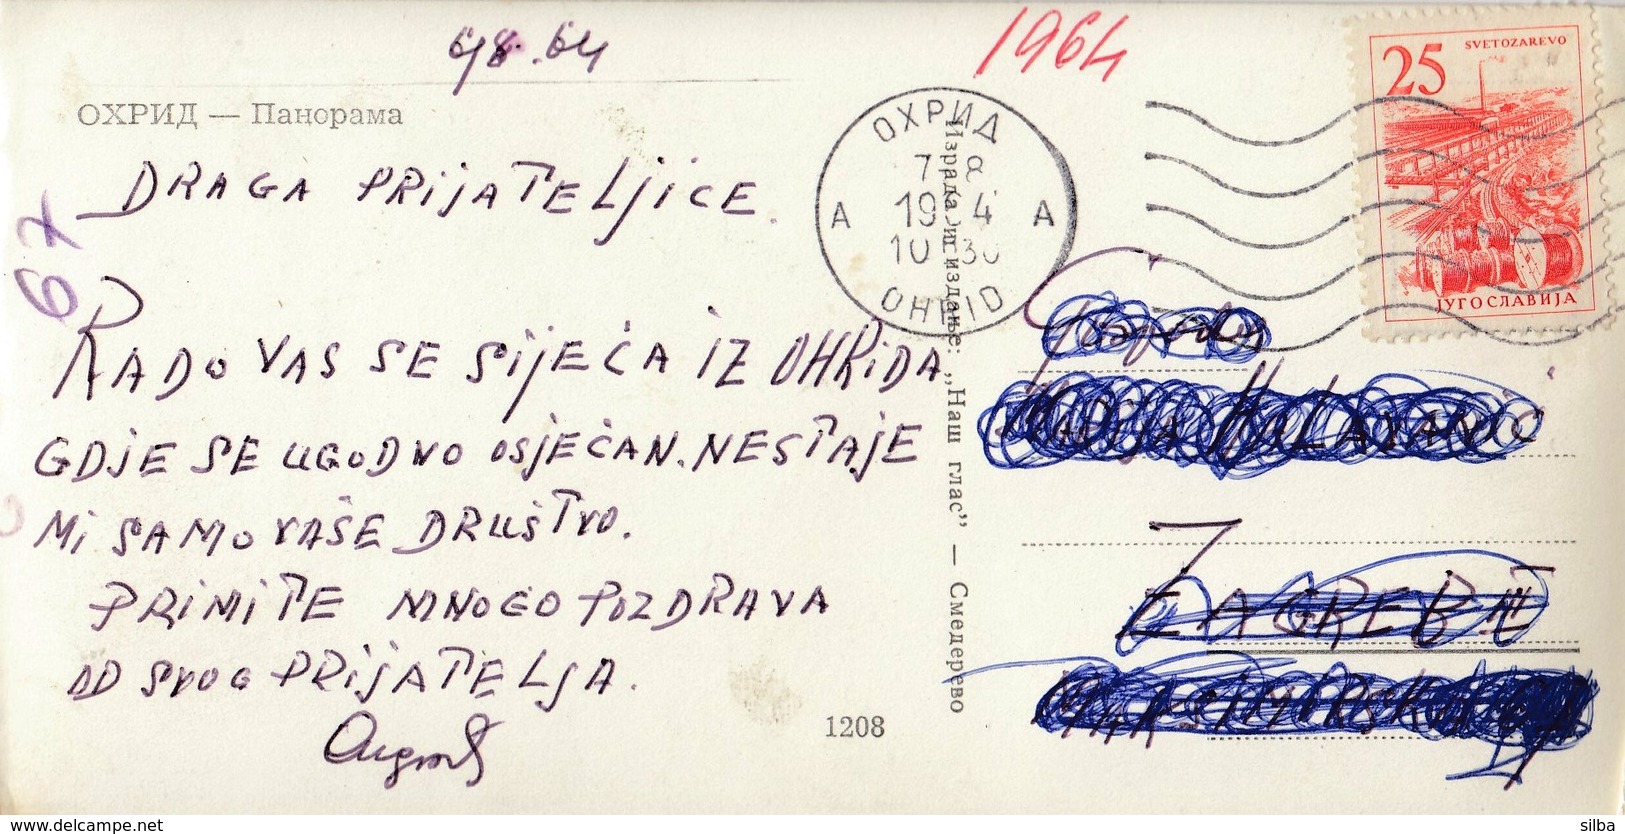 1964
25
SVETOZAREVO
ЈУГОСЛАВИЈА
ОХРИД — Панорама
ОХРИД
7
A 19 4 A
10 30
OHRID
67
DRAGA PRIJATELJICE.
RADO VAS SE SIJEĆA IZ OHRIDA
GDJE SE UGODNO OSJEĆAN. NESTAJE
MI SAMO VAŠE DRUŠTVO.
PRIMITE MNOGO POZDRAVA
OD SVOG PRIJATELJA.
Израда и издање: „Наш глас” — Смедерево
ZAGREB
1208
delcampe.net
silba